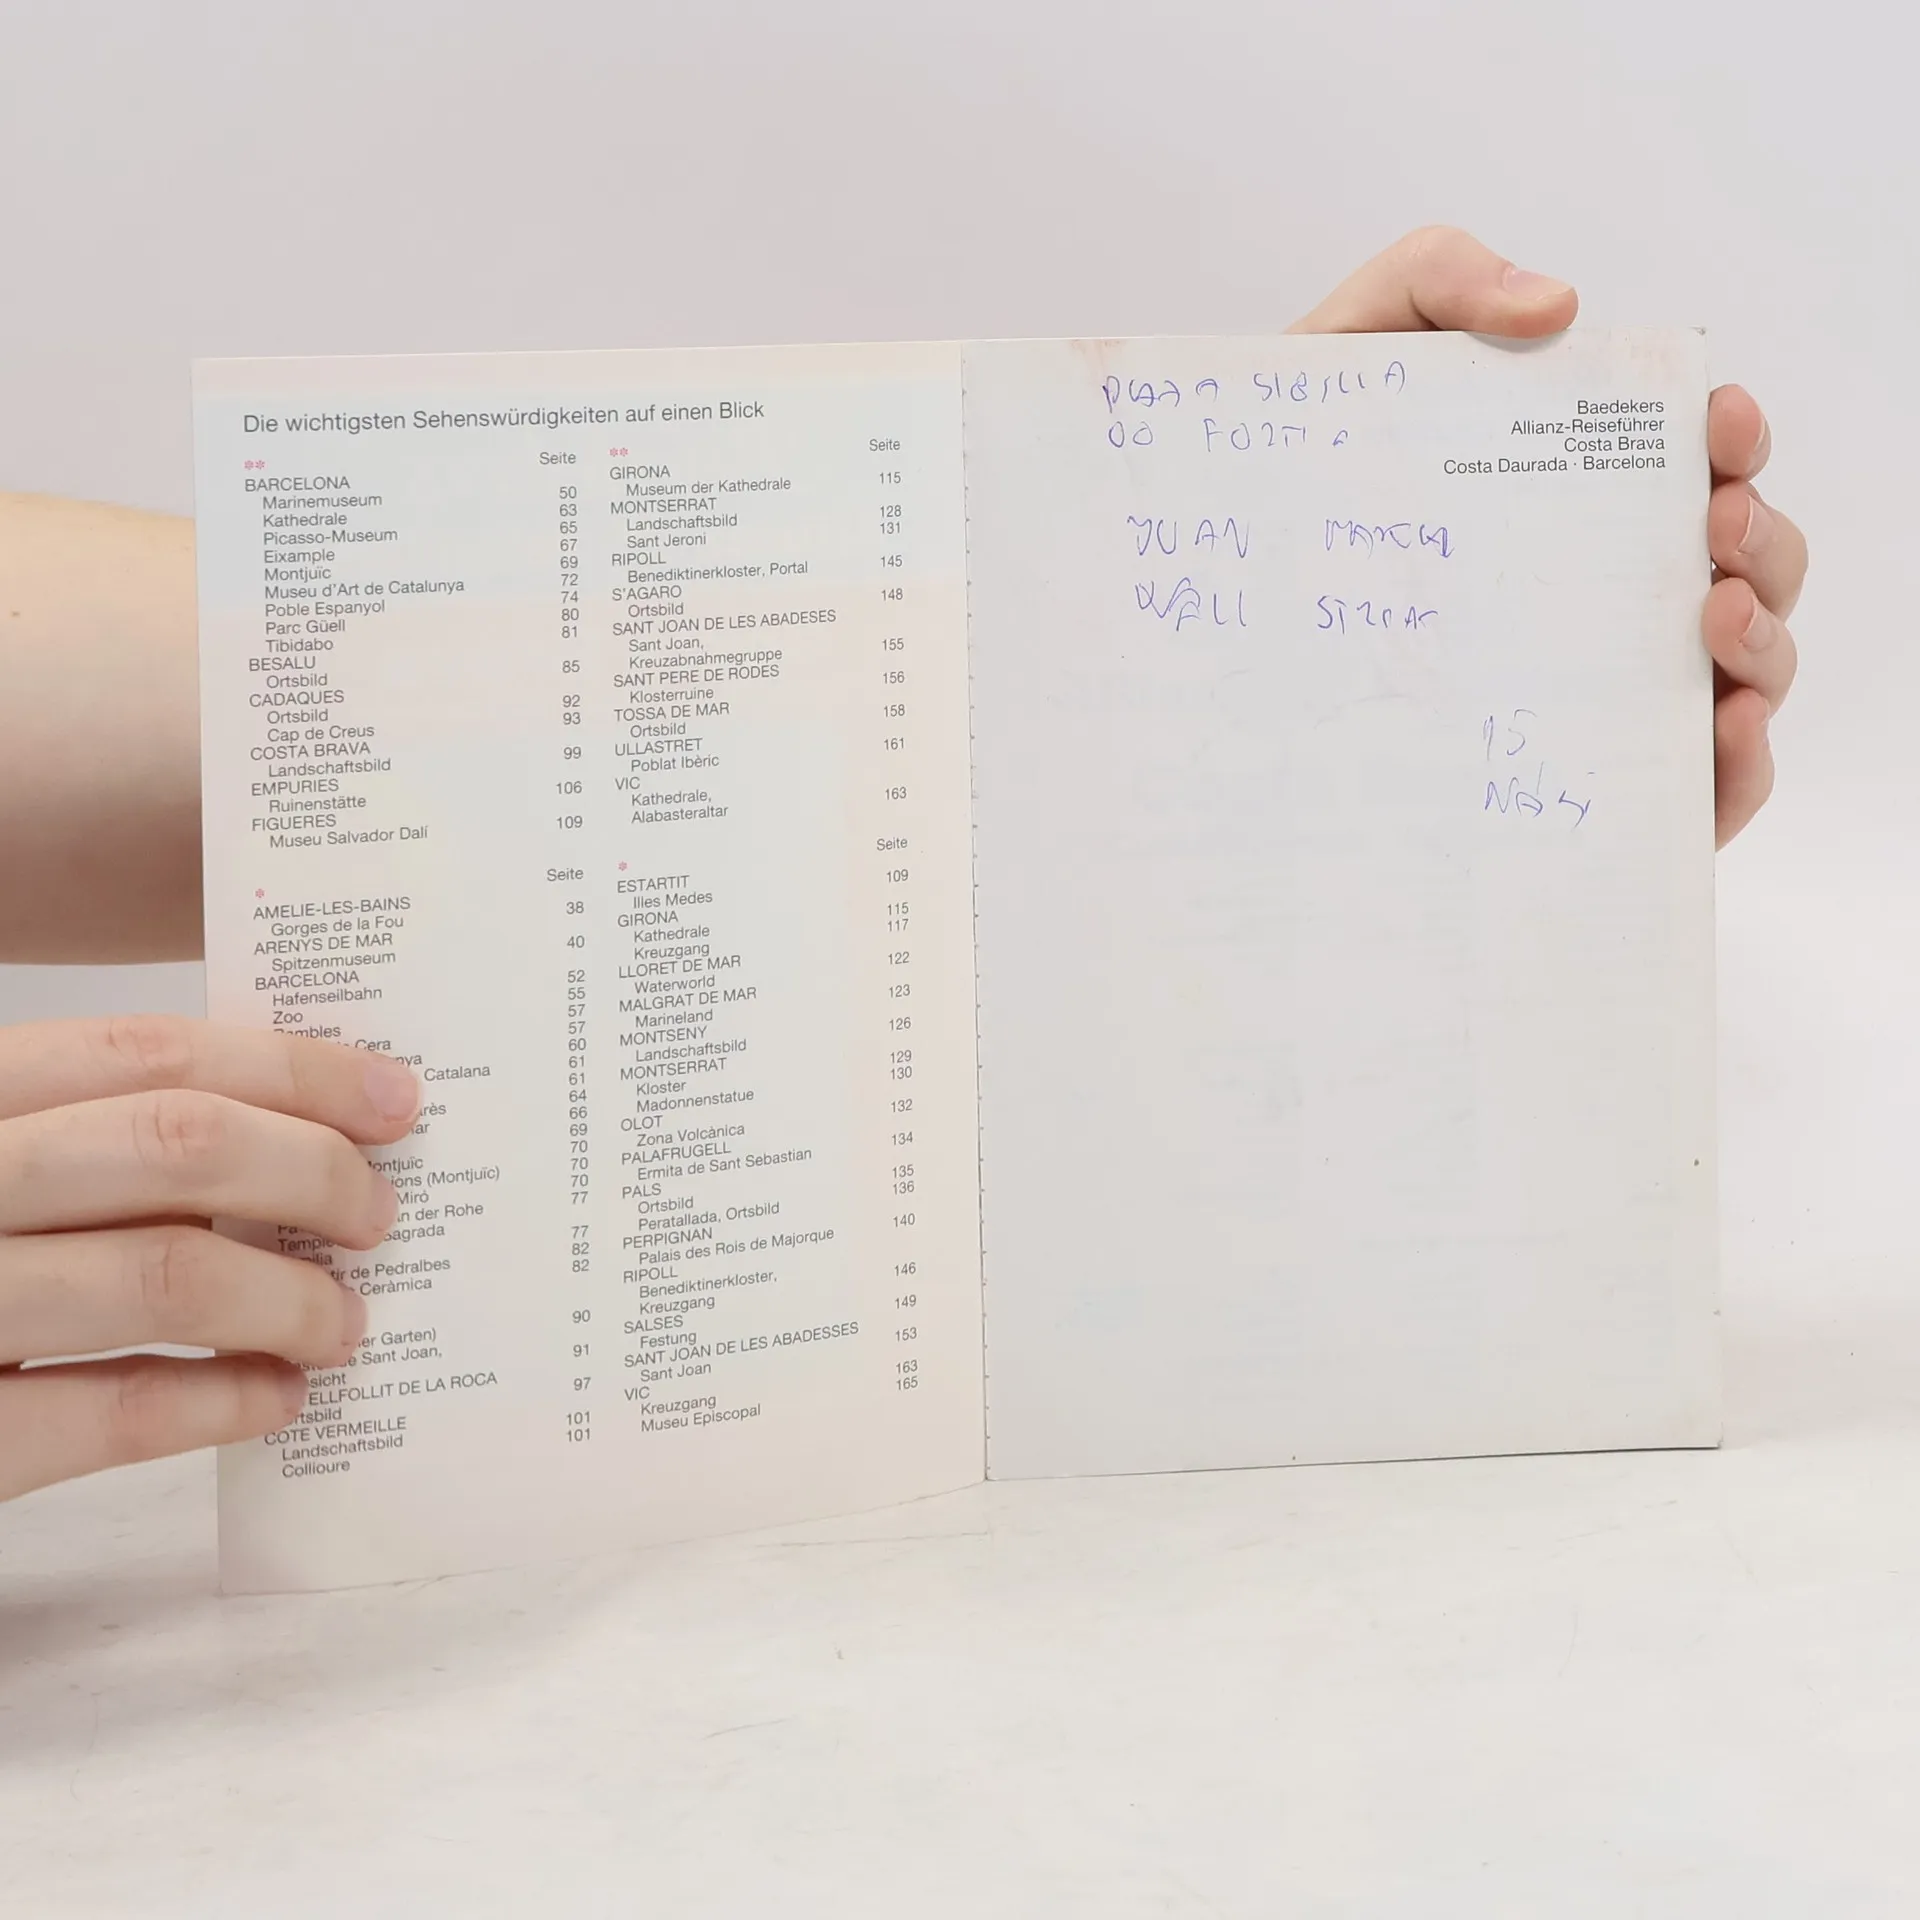 Die wichtigsten Sehenswürdigkeiten auf einen Blick
** Seite
BARCELONA
Marinemuseum 50
Kathedrale 63
Picasso-Museum 65
Eixample 67
Montjuïc 69
Museu d'Art de Catalunya 72
Poble Espanyol 74
Parc Güell 80
Tibidabo 81
BESALU
Ortsbild 85
CADAQUES
Ortsbild 92
Cap de Creus 93
COSTA BRAVA
Landschaftsbild 99
EMPURIES
Ruinenstätte 106
FIGUERES
Museu Salvador Dalí 109
** Seite
GIRONA
Museum der Kathedrale 115
MONTSERRAT
Landschaftsbild 128
Sant Jeroni 131
RIPOLL
Benediktinerkloster, Portal 145
S'AGARO
Ortsbild 148
SANT JOAN DE LES ABADESES
Sant Joan,
Kreuzabnahmegruppe 155
SANT PERE DE RODES
Klosterruine 156
TOSSA DE MAR
Ortsbild 158
ULLASTRET
Poblat Ibèric 161
VIC
Kathedrale,
Alabasteraltar 163
* Seite
AMELIE-LES-BAINS
Gorges de la Fou 38
ARENYS DE MAR
Spitzenmuseum 40
BARCELONA
Hafenseilbahn 52
Zoo 55
57
Cera 57
60
Catalana 61
61
64
66
69
70
(Montjuïc) 70
Miró 70
der Rohe 77
Sagrada
77
de Pedralbes 82
Ceràmica 82
Garten) 90
Sant Joan,
91
DE LA ROCA
97
COTE VERMEILLE
Landschaftsbild 101
Collioure 101
* Seite
ESTARTIT
Illes Medes 109
GIRONA
Kathedrale 115
Kreuzgang 117
LLORET DE MAR
Waterworld 122
MALGRAT DE MAR
Marineland 123
MONTSENY
Landschaftsbild 126
MONTSERRAT
Kloster 129
Madonnenstatue 130
OLOT
Zona Volcànica 132
PALAFRUGELL
Ermita de Sant Sebastian 134
PALS
Ortsbild 135
Peratallada, Ortsbild 136
PERPIGNAN
Palais des Rois de Majorque 140
RIPOLL
Benediktinerkloster,
Kreuzgang 146
SALSES
Festung 149
SANT JOAN DE LES ABADESSES
Sant Joan 153
VIC
Kreuzgang 163
Museu Episcopal 165
Baedekers
Allianz-Reiseführer
Costa Brava
Costa Daurada · Barcelona
JUAN
WALL
15